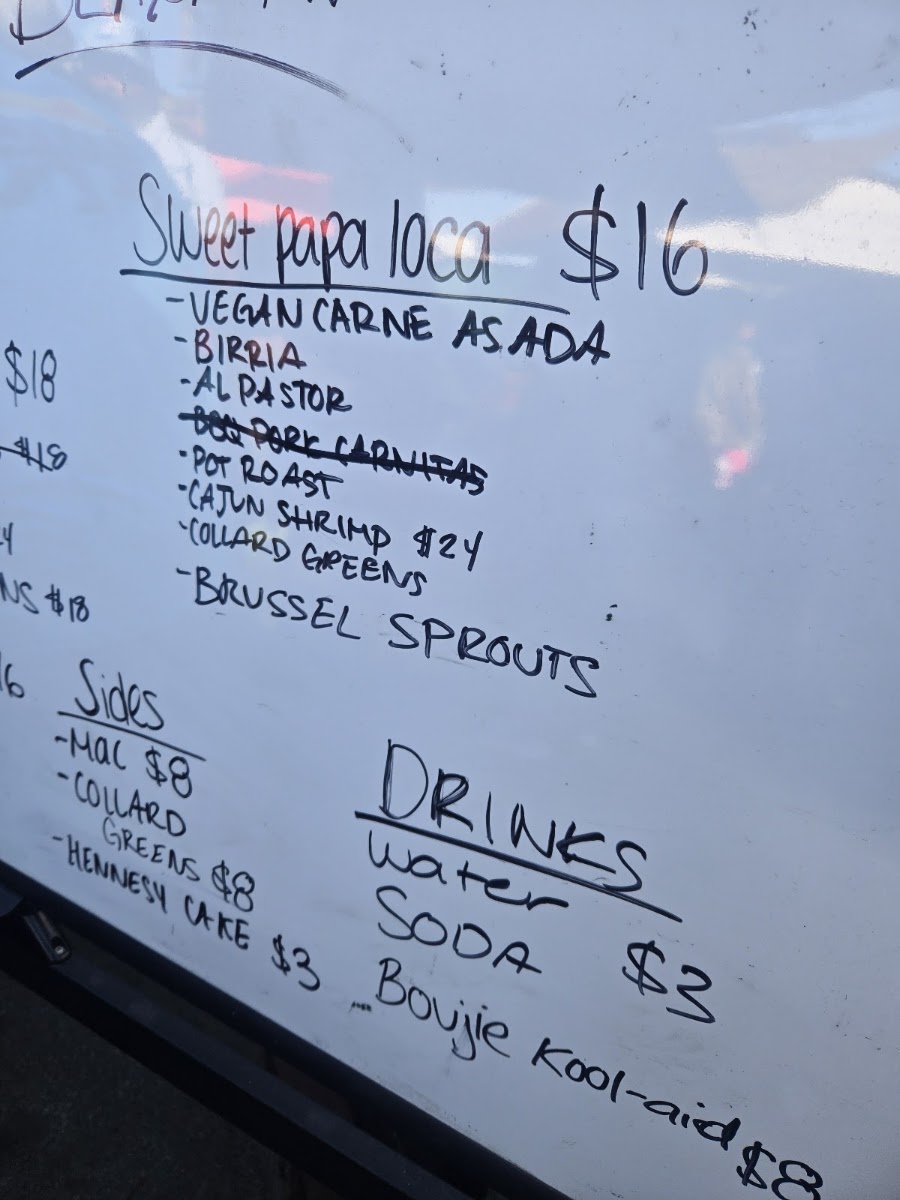 Sweet papa loca $16
- VEGAN CARNE ASADA
- BIRRIA
- AL PASTOR
BBQ PORK CARNITAS
- POT ROAST
- CAJUN SHRIMP $24
- COLLARD GREENS
- BRUSSEL SPROUTS
$18
$18
4
NS $18
16
Sides
- MAC $8
- COLLARD
GREENS $8
- HENNESY CAKE $3
DRINKS
Water
SODA $3
... Boujie Kool-aid $8